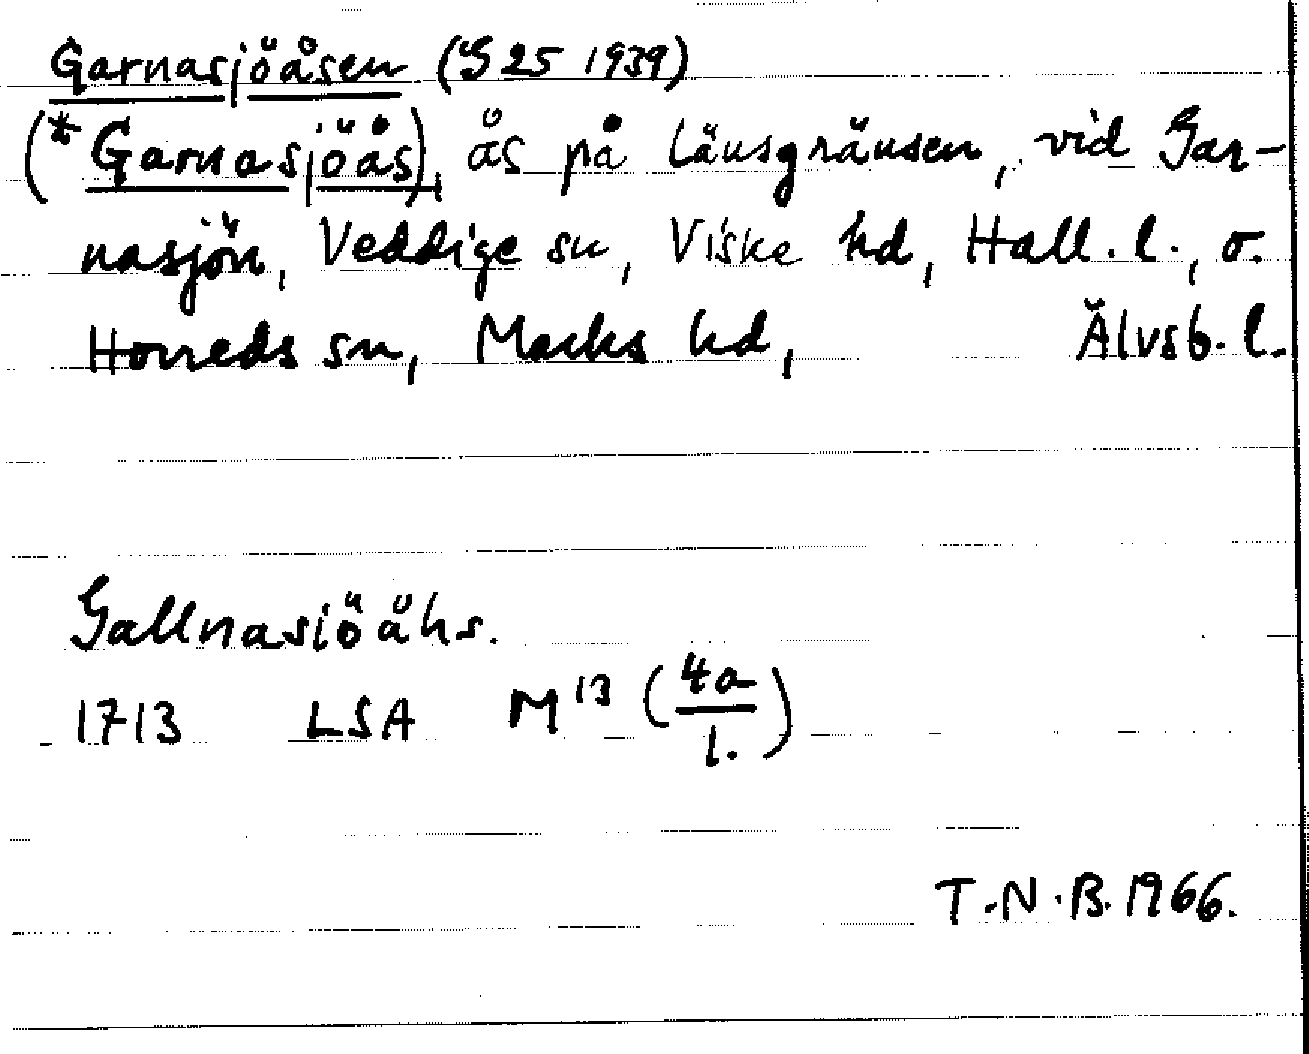 Garnasjöåsen (G 25 1939)
(* Garnasjöås), ås på länsgränsen, vid Gar-
nasjön, Veddige sn, Viske hd, Hall. l., o.
Horreds sn, Marks hd, Älvsb. l.
Gallnasiöåhs.
1713 LSA M13 (4a/1.)
T.N.B. 1966.